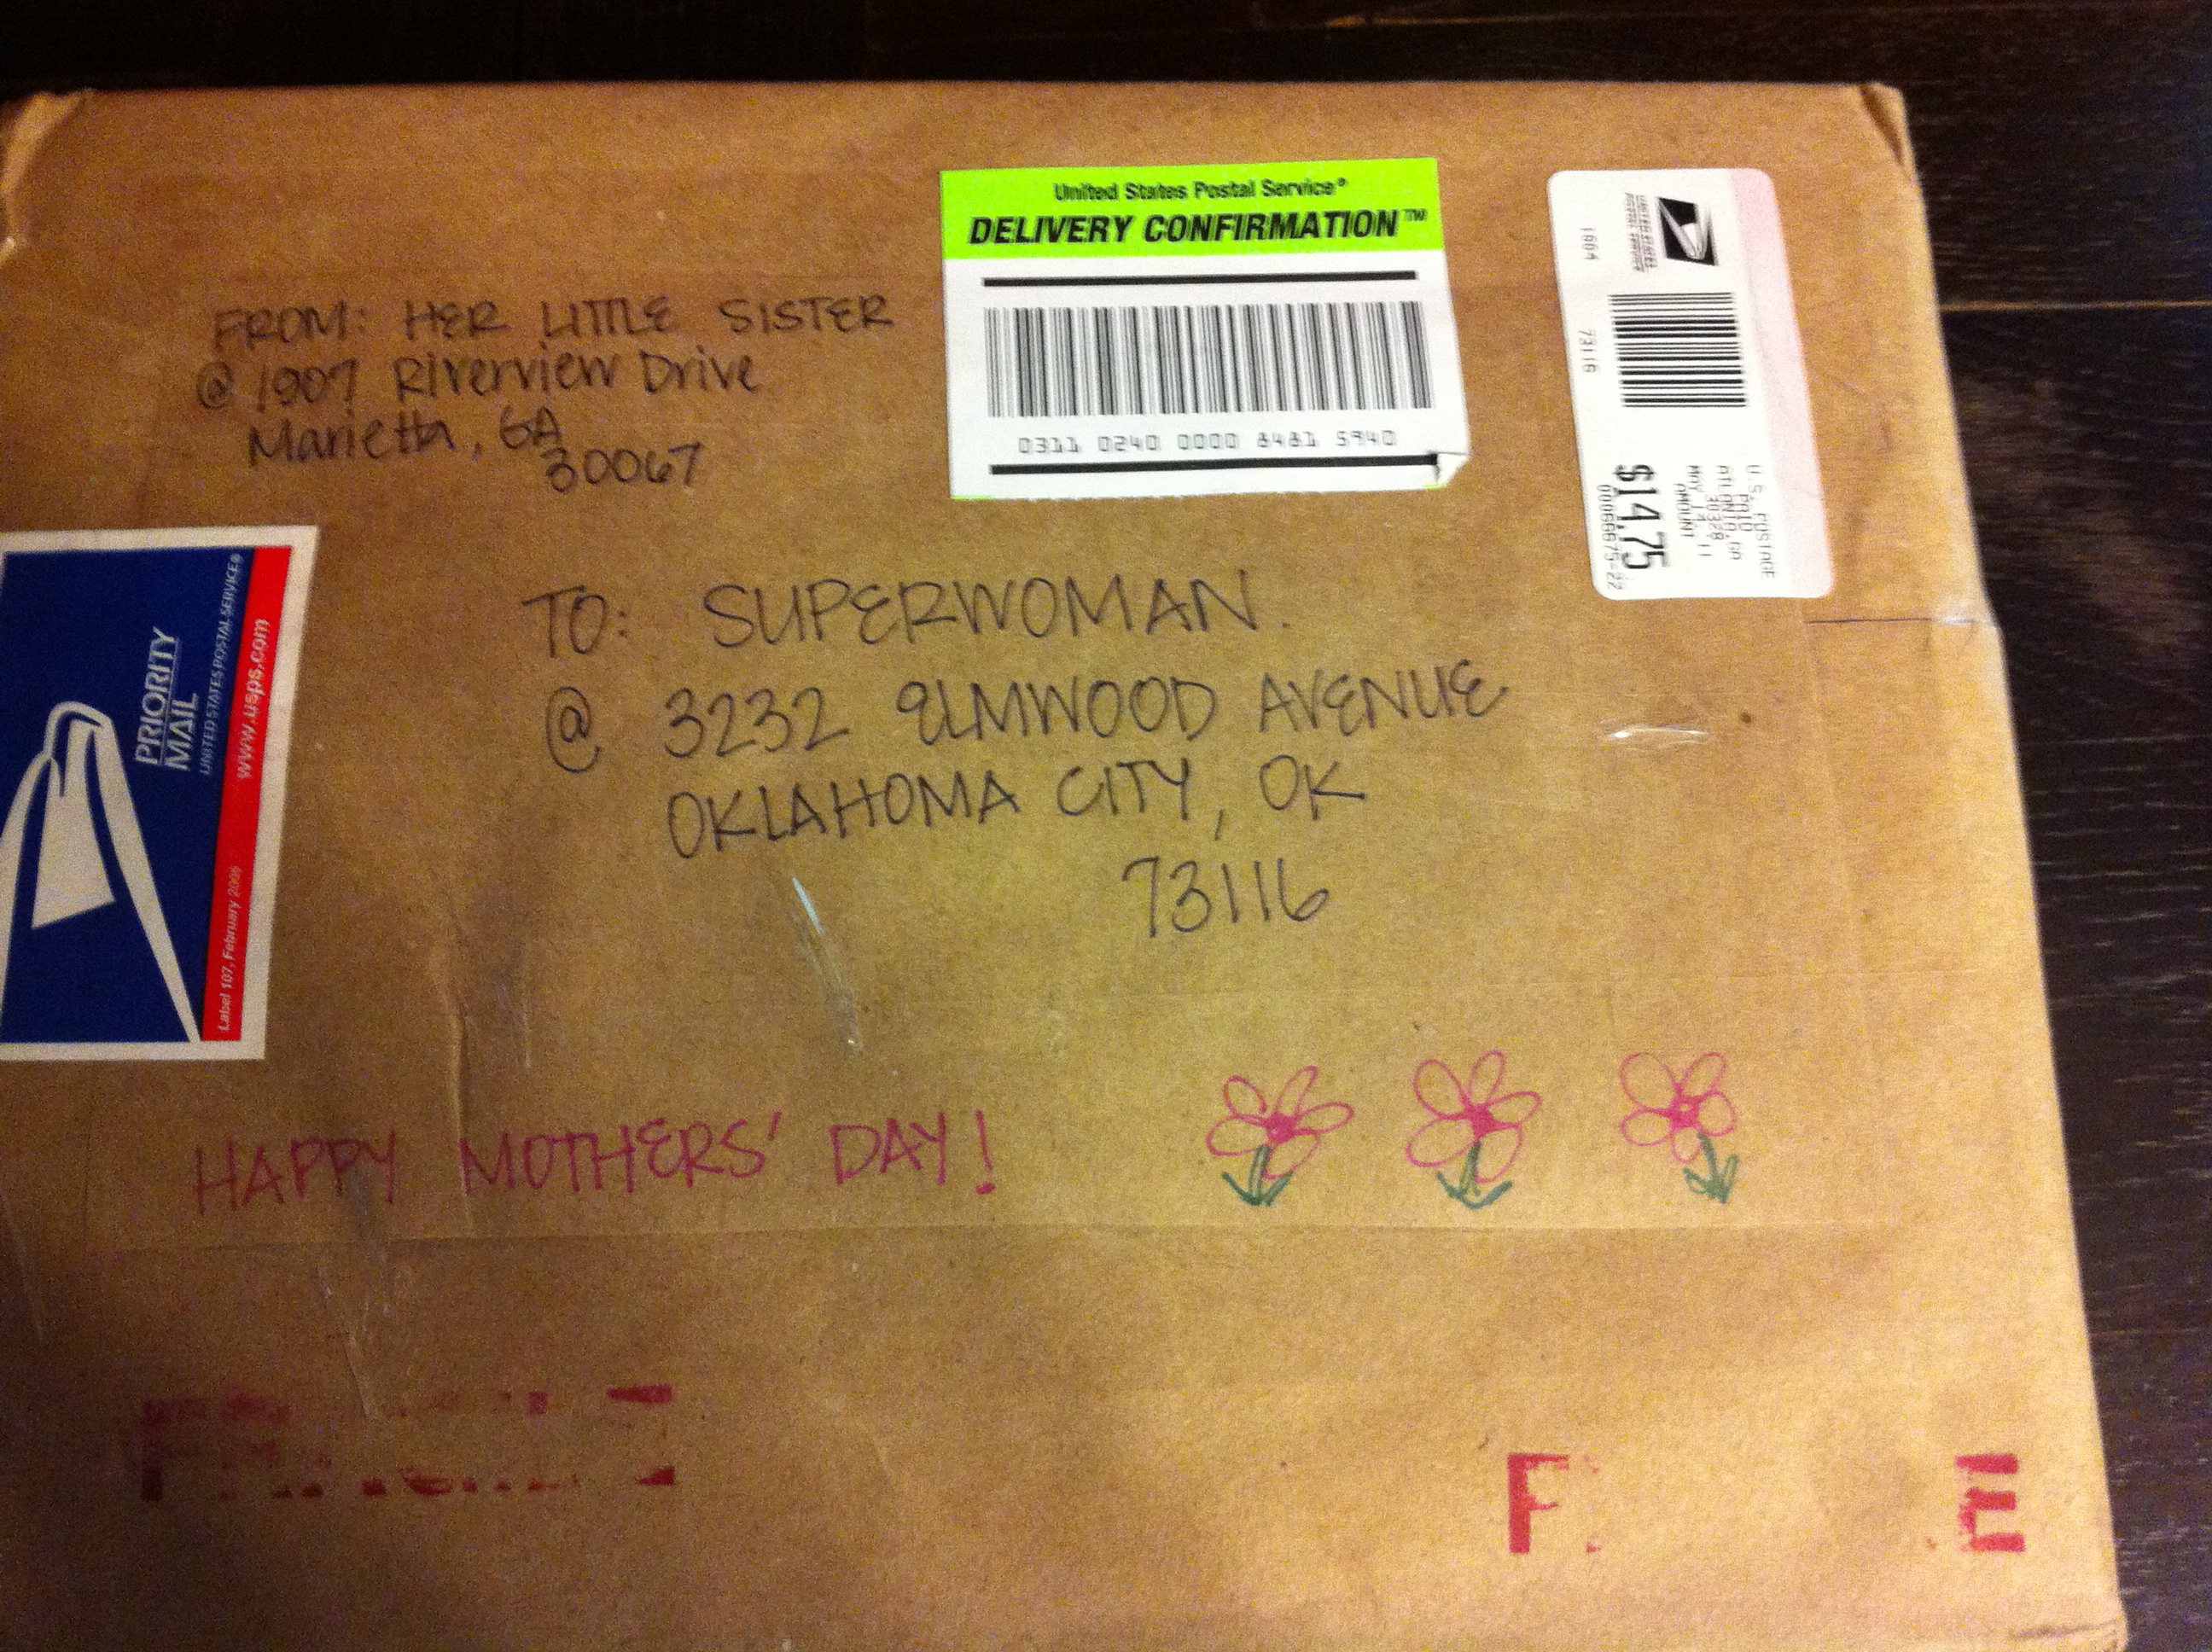 United States Postal Service®
DELIVERY CONFIRMATION™
0311 0240 0000 8481 5940
UNITED STATES
POSTAL SERVICE
1004
73116
U.S. POSTAGE
PAID
ATLANTA, GA
30328
AMOUNT
$14.75
FROM: HER LITTLE SISTER
@ 1907 Riverview Drive
Marietta, GA
30067
PRIORITY
MAIL
UNITED STATES POSTAL SERVICE®
www.usps.com
Label 107, February 2006
TO: SUPERWOMAN.
@ 3232 ELMWOOD AVENUE
OKLAHOMA CITY, OK
73116
HAPPY MOTHERS' DAY!
F E